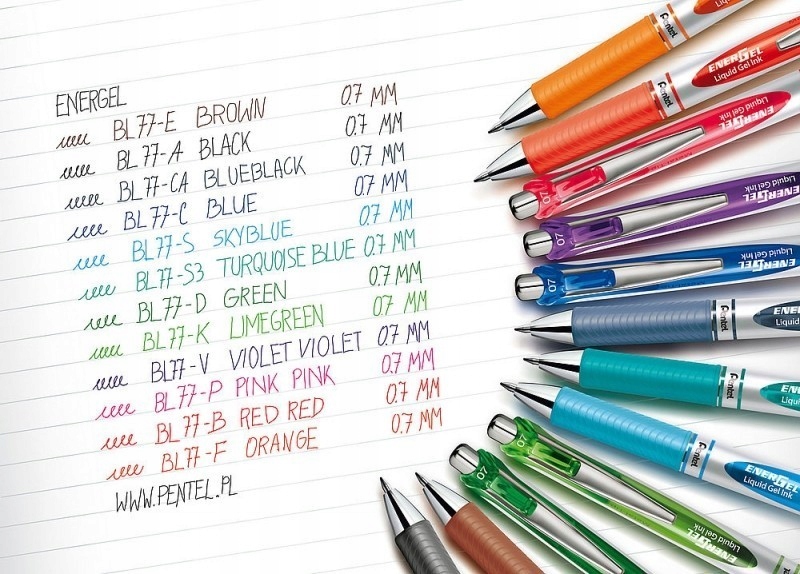 ENERGEL
BL77-E BROWN 0.7 MM
BL77-A BLACK 0.7 MM
BL77-CA BLUEBLACK 0.7 MM
BL77-C BLUE 0.7 MM
BL77-S SKYBLUE 0.7 MM
BL77-S3 TURQUOISE BLUE 0.7 MM
BL77-D GREEN 0.7 MM
BL77-K LIMEGREEN 0.7 MM
BL77-V VIOLET VIOLET 0.7 MM
BL77-P PINK PINK 0.7 MM
BL77-B RED RED 0.7 MM
BL77-F ORANGE 0.7 MM
WWW.PENTEL.PL
Pentel
Pentel
ENERGEL
Liquid Gel Ink
07
ENERGEL
Liquid Gel Ink
07
ENERGEL
Liquid Gel Ink
07
ENERGEL
Liquid Gel Ink
Pentel
ENER
Liquid
Pentel
ENE
Liquid
Pentel
ENERGEL
Liquid Gel Ink
07
ENERGEL
Liquid Gel Ink
07